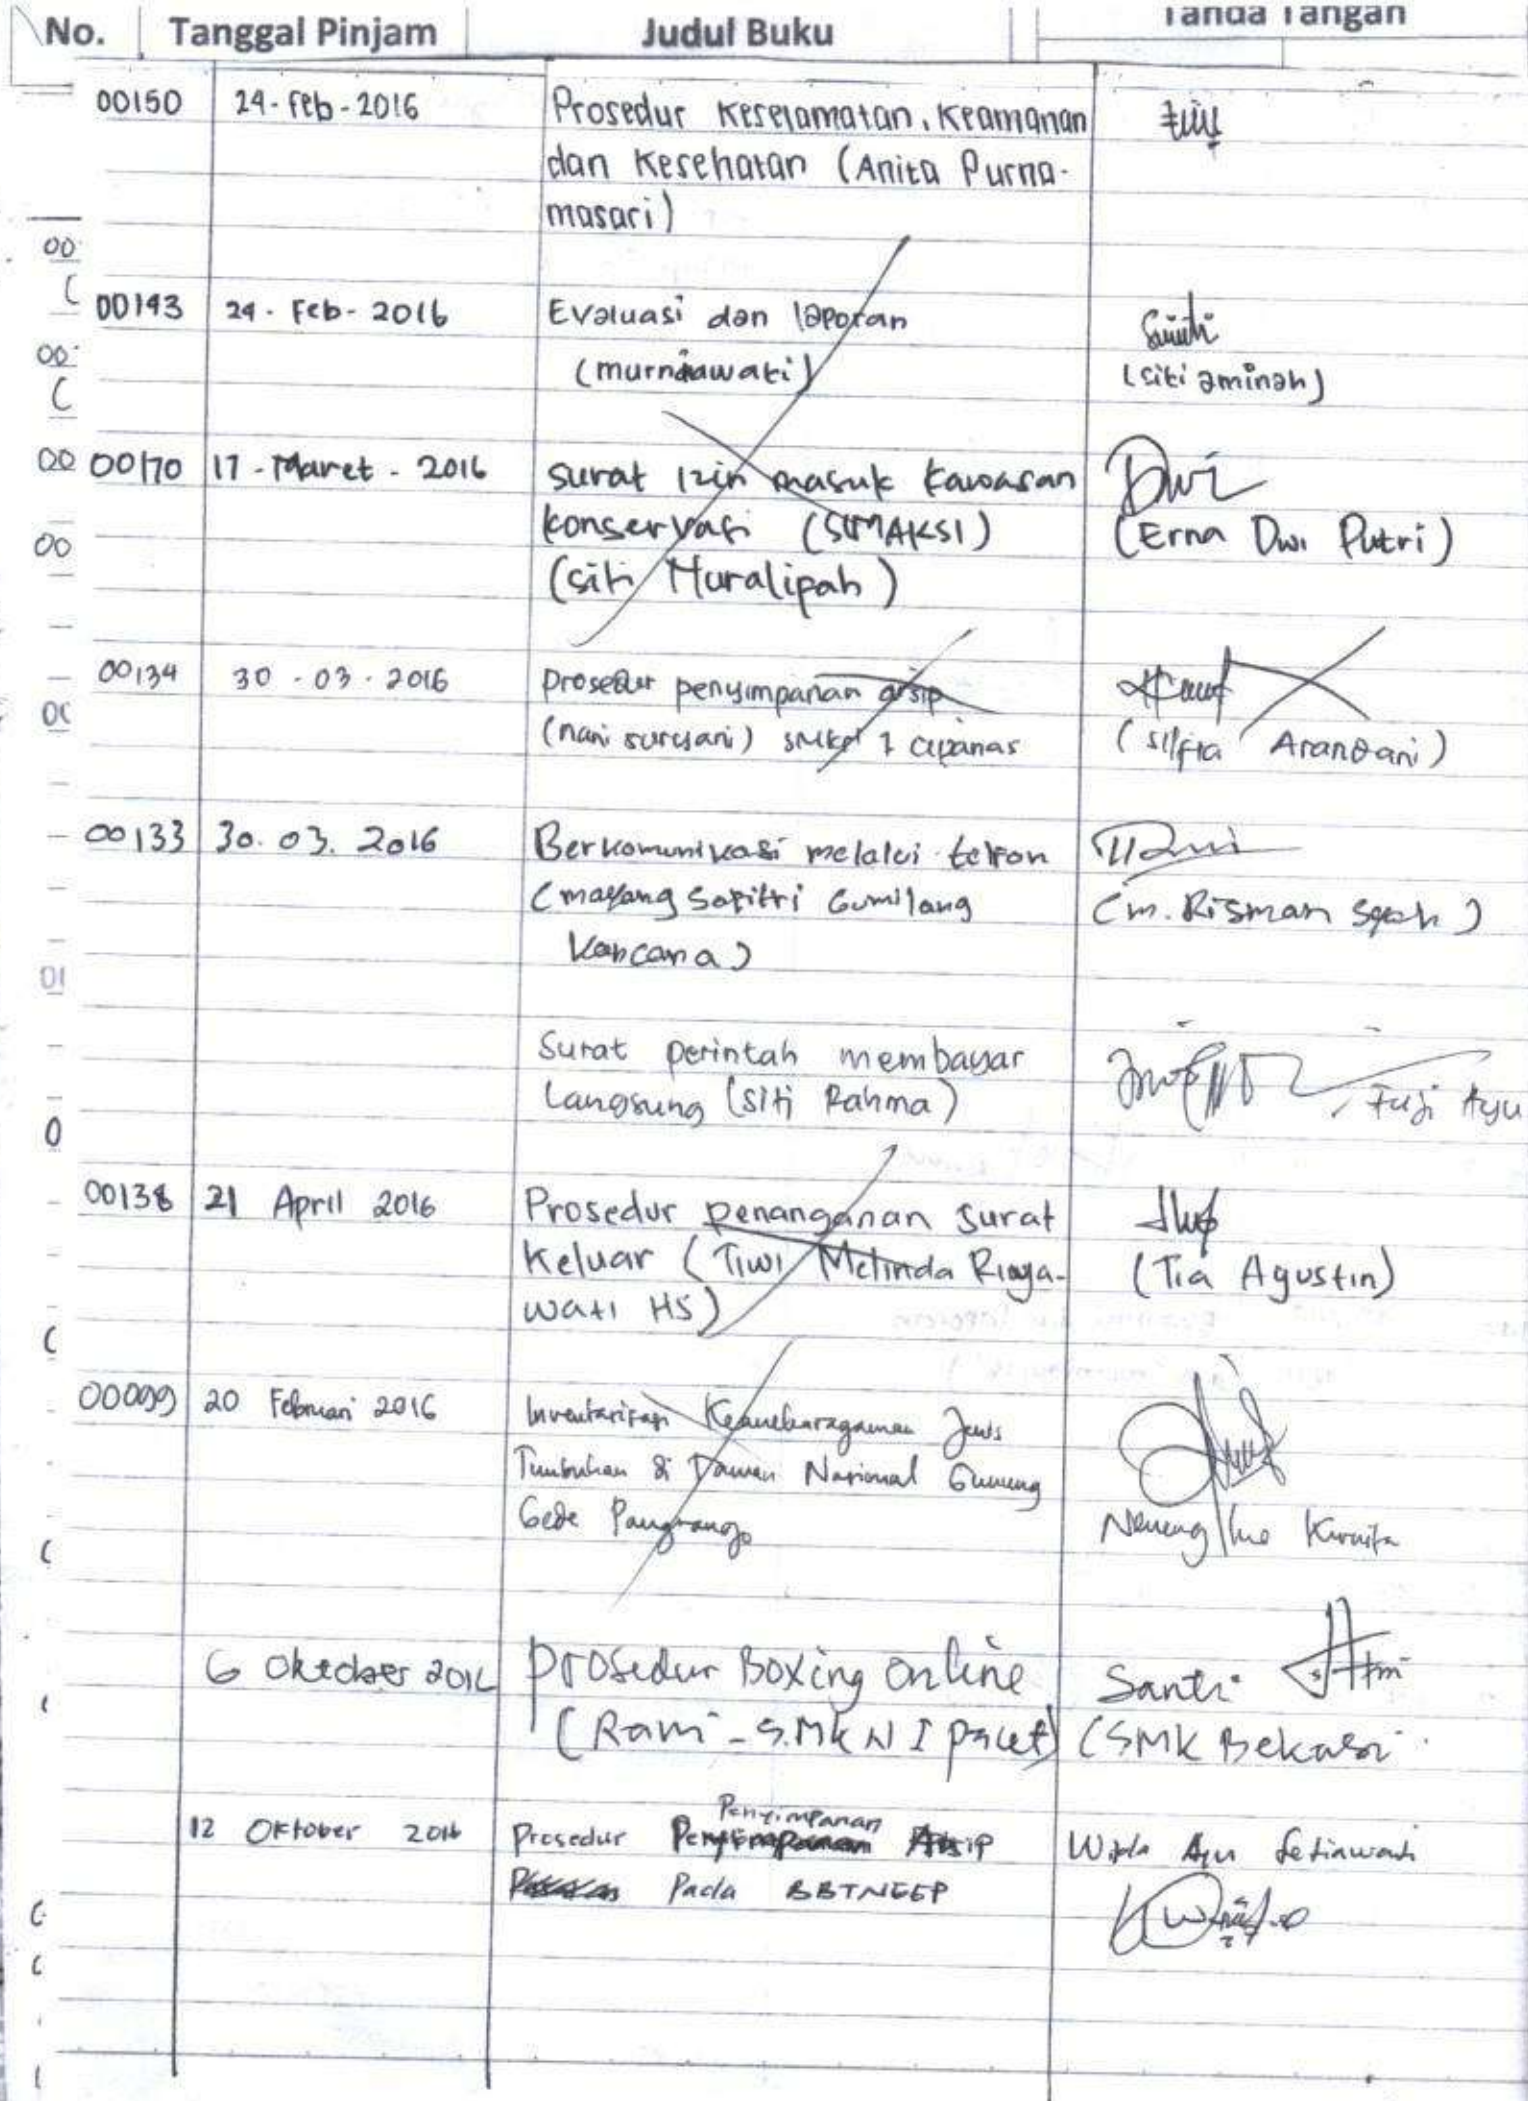 No. Tanggal Pinjam Judul Buku Tanda Tangan
00150 24-Feb-2016 Prosedur Keselamatan, Keamanan
dan Kesehatan (Anita Purna-
masari)
00143 24-Feb-2016 Evaluasi dan laporan
(murniawati) (siti aminah)
00170 17-Maret-2016 Surat Izin masuk kawasan Dwi
konservasi (SIMAKSI) (Erna Dwi Putri)
(siti Muralipah)
00134 30-03-2016 prosedur penyimpanan arsip
(nani suryani) SMKN 1 cipanas (silfia Arandani)
00133 30.03.2016 Berkomunikasi melalui telfon
(mayang Sapitri Gumilang (m. Risman
Kancana)
Surat perintah membayar
Langsung (siti Rahma) Fuji Ayu
00138 21 April 2016 Prosedur penanganan surat
Keluar (Tiwi Melinda (Tia Agustin)
wati HS)
00099 20 Februari 2016 Inventarisasi Keanekaragaman Jenis
Tumbuhan di Taman Nasional Gunung
Gede Pangrango Neneng Kurnita
6 Oktober 2016 prosedur Boxing online Santi
(Rani - SMKN I pacet) (SMK Bekasi
Penyimpanan
12 Oktober 2016 Prosedur Arsip Ayu Setiawati
Pada BBTNGGP